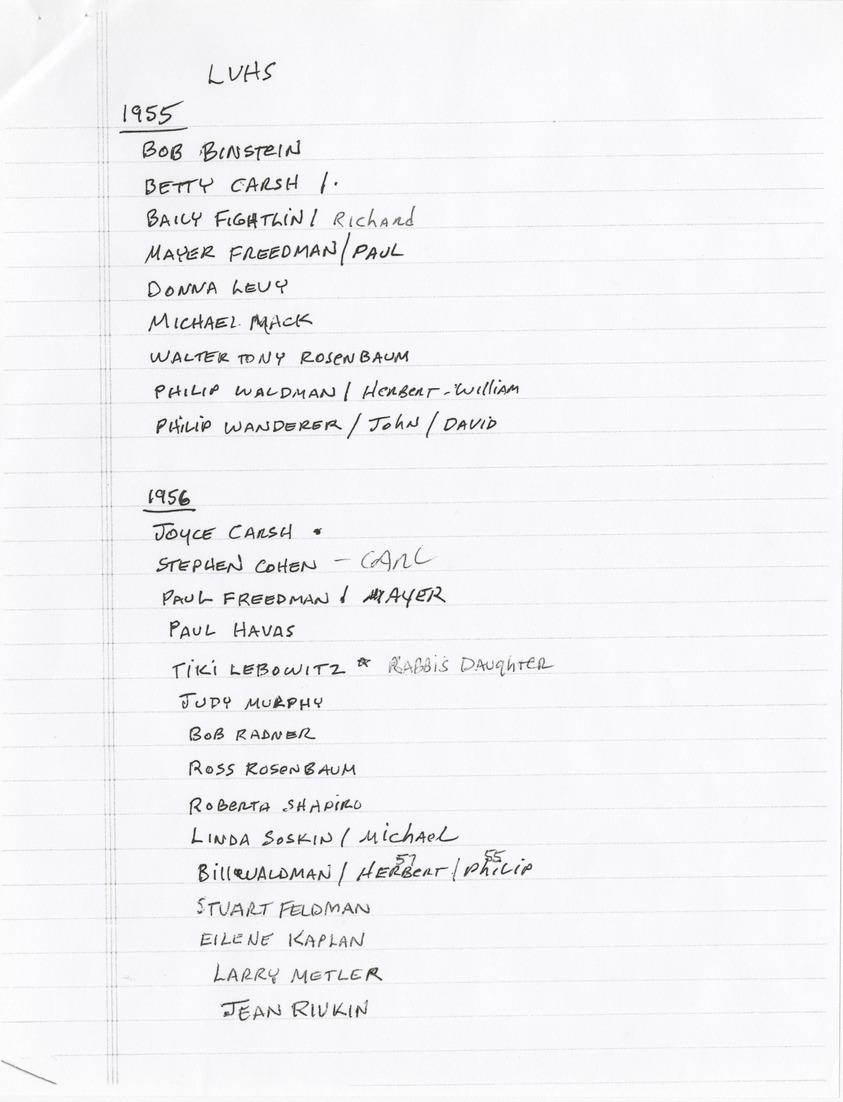 LVHS
1955
BOB BINSTEIN
BETTY CARSH / .
BAILY FIGHTLIN / Richard
MAYER FREEDMAN / PAUL
DONNA LEVY
MICHAEL MACK
WALTER TONY ROSENBAUM
PHILIP WALDMAN / Herbert - William
PHILIP WANDERER / John / DAVID
1956
JOYCE CARSH •
STEPHEN COHEN – CARL
PAUL FREEDMAN / MAYER
PAUL HAVAS
TIKI LEBOWITZ * RABBIS DAUGHTER
JUDY MURPHY
BOB RADNER
ROSS ROSENBAUM
ROBERTA SHAPIRO
LINDA SOSKIN / Michael
57 55
Bill WALDMAN / HERBERT / PhiLiP
STUART FELDMAN
EILENE KAPLAN
LARRY METLER
JEAN RIVKIN